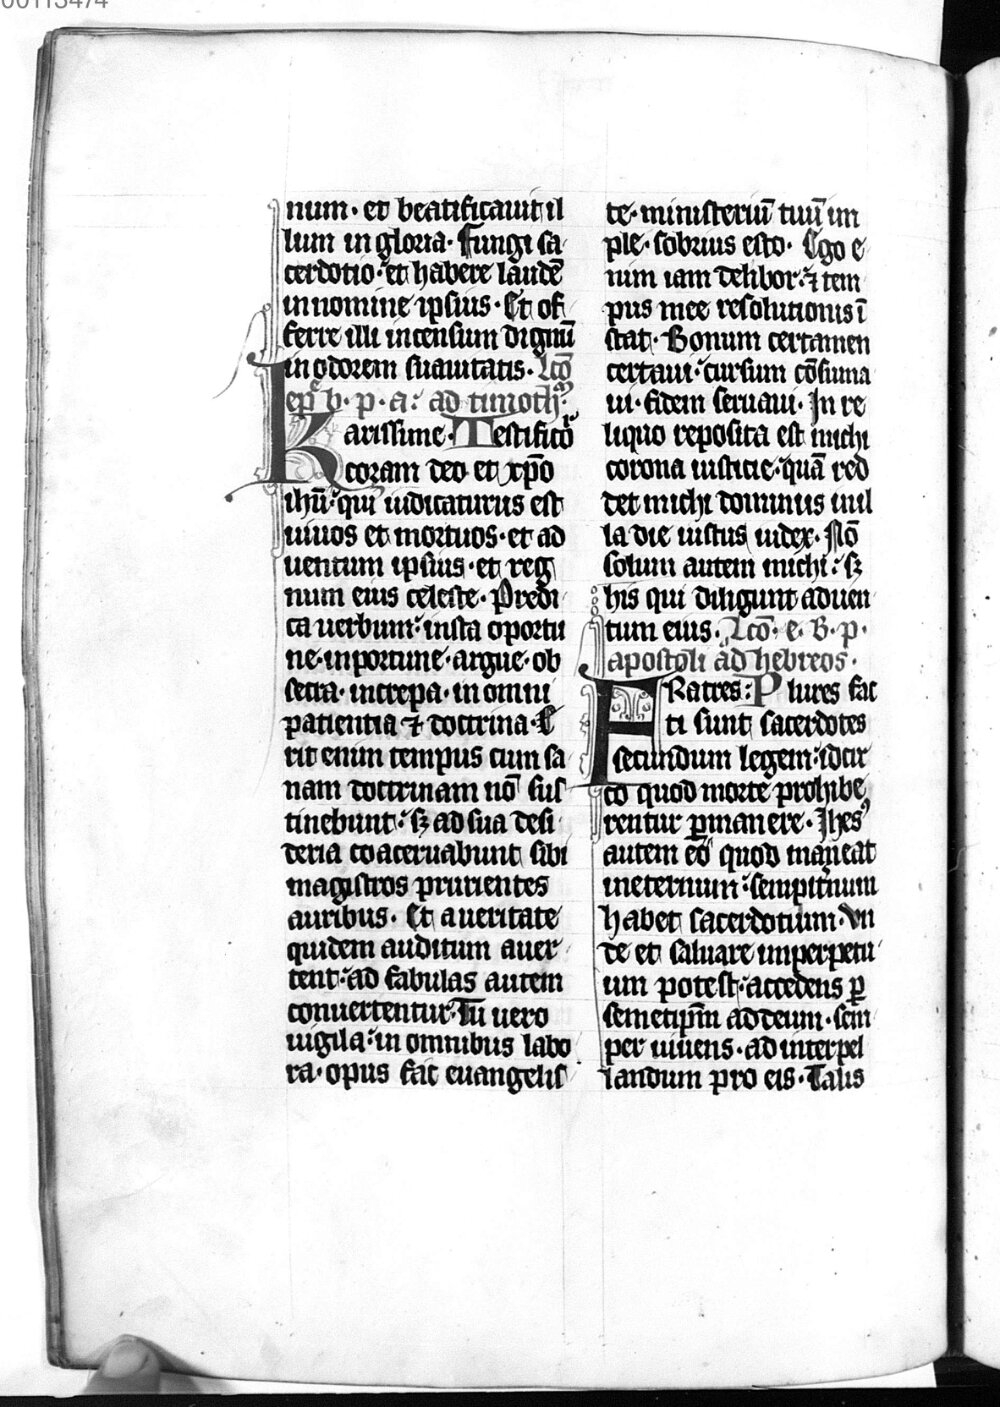 00113474
num· et beatificauit il
lum in gloria· Fungi sa
cerdotio· et habere laudē
in nomine ipsius· Et of
ferre illi incensum dignū
in odorem suauitatis· Lcō
ep̄ b· p· a· ad timothꝫ
Karissime· Testificor
coram deo et xp̄o
ihū· qui iudicaturus est
uiuos et mortuos· et ad
uentum ipsius· et reg
num eius celeste· Predi
ca uerbum· insta oportu
ne· inportune· argue· ob
secra· increpa· in omni
patientia ⁊ doctrina· E
rit enim tempus cum sa
nam doctrinam nō sus
tinebunt· sꝫ ad sua desi
deria coaceruabunt sibi
magistros prurientes
auribus· Et a ueritate
quidem auditum auer
tent· ad fabulas autem
conuertentur· Tu uero
uigila· in omnibus labo
ra· opus fac euangelis
te· ministeriū tuū im
ple· sobrius esto· Ego e
nim iam delibor· ⁊ tem
pus mee resolutionis ī
stat· Bonum certamen
certaui· cursum cōsuma
ui· fidem seruaui· In re
liquo reposita est michi
corona iusticie· quā red
det michi dominus in il
la die iustus iudex· Nō
solum autem michi· sꝫ
his qui diligunt aduen
tum eius· Lcō· e· b· p·
apostoli ad hebreos·
FRatres: Plures fac
ti sunt sacerdotes
secundum legem· idcir
co quod morte prohibe
rentur ꝑmanere· Ihes᷒
autem eo quod maneat
in eternum· sempit̓num
habet sacerdotium· Vn
de et saluare imperpetu
um potest· accedens ꝑ
semetip̄m ad deum· sem
per uiuens· ad interpel
landum pro eis· Talis